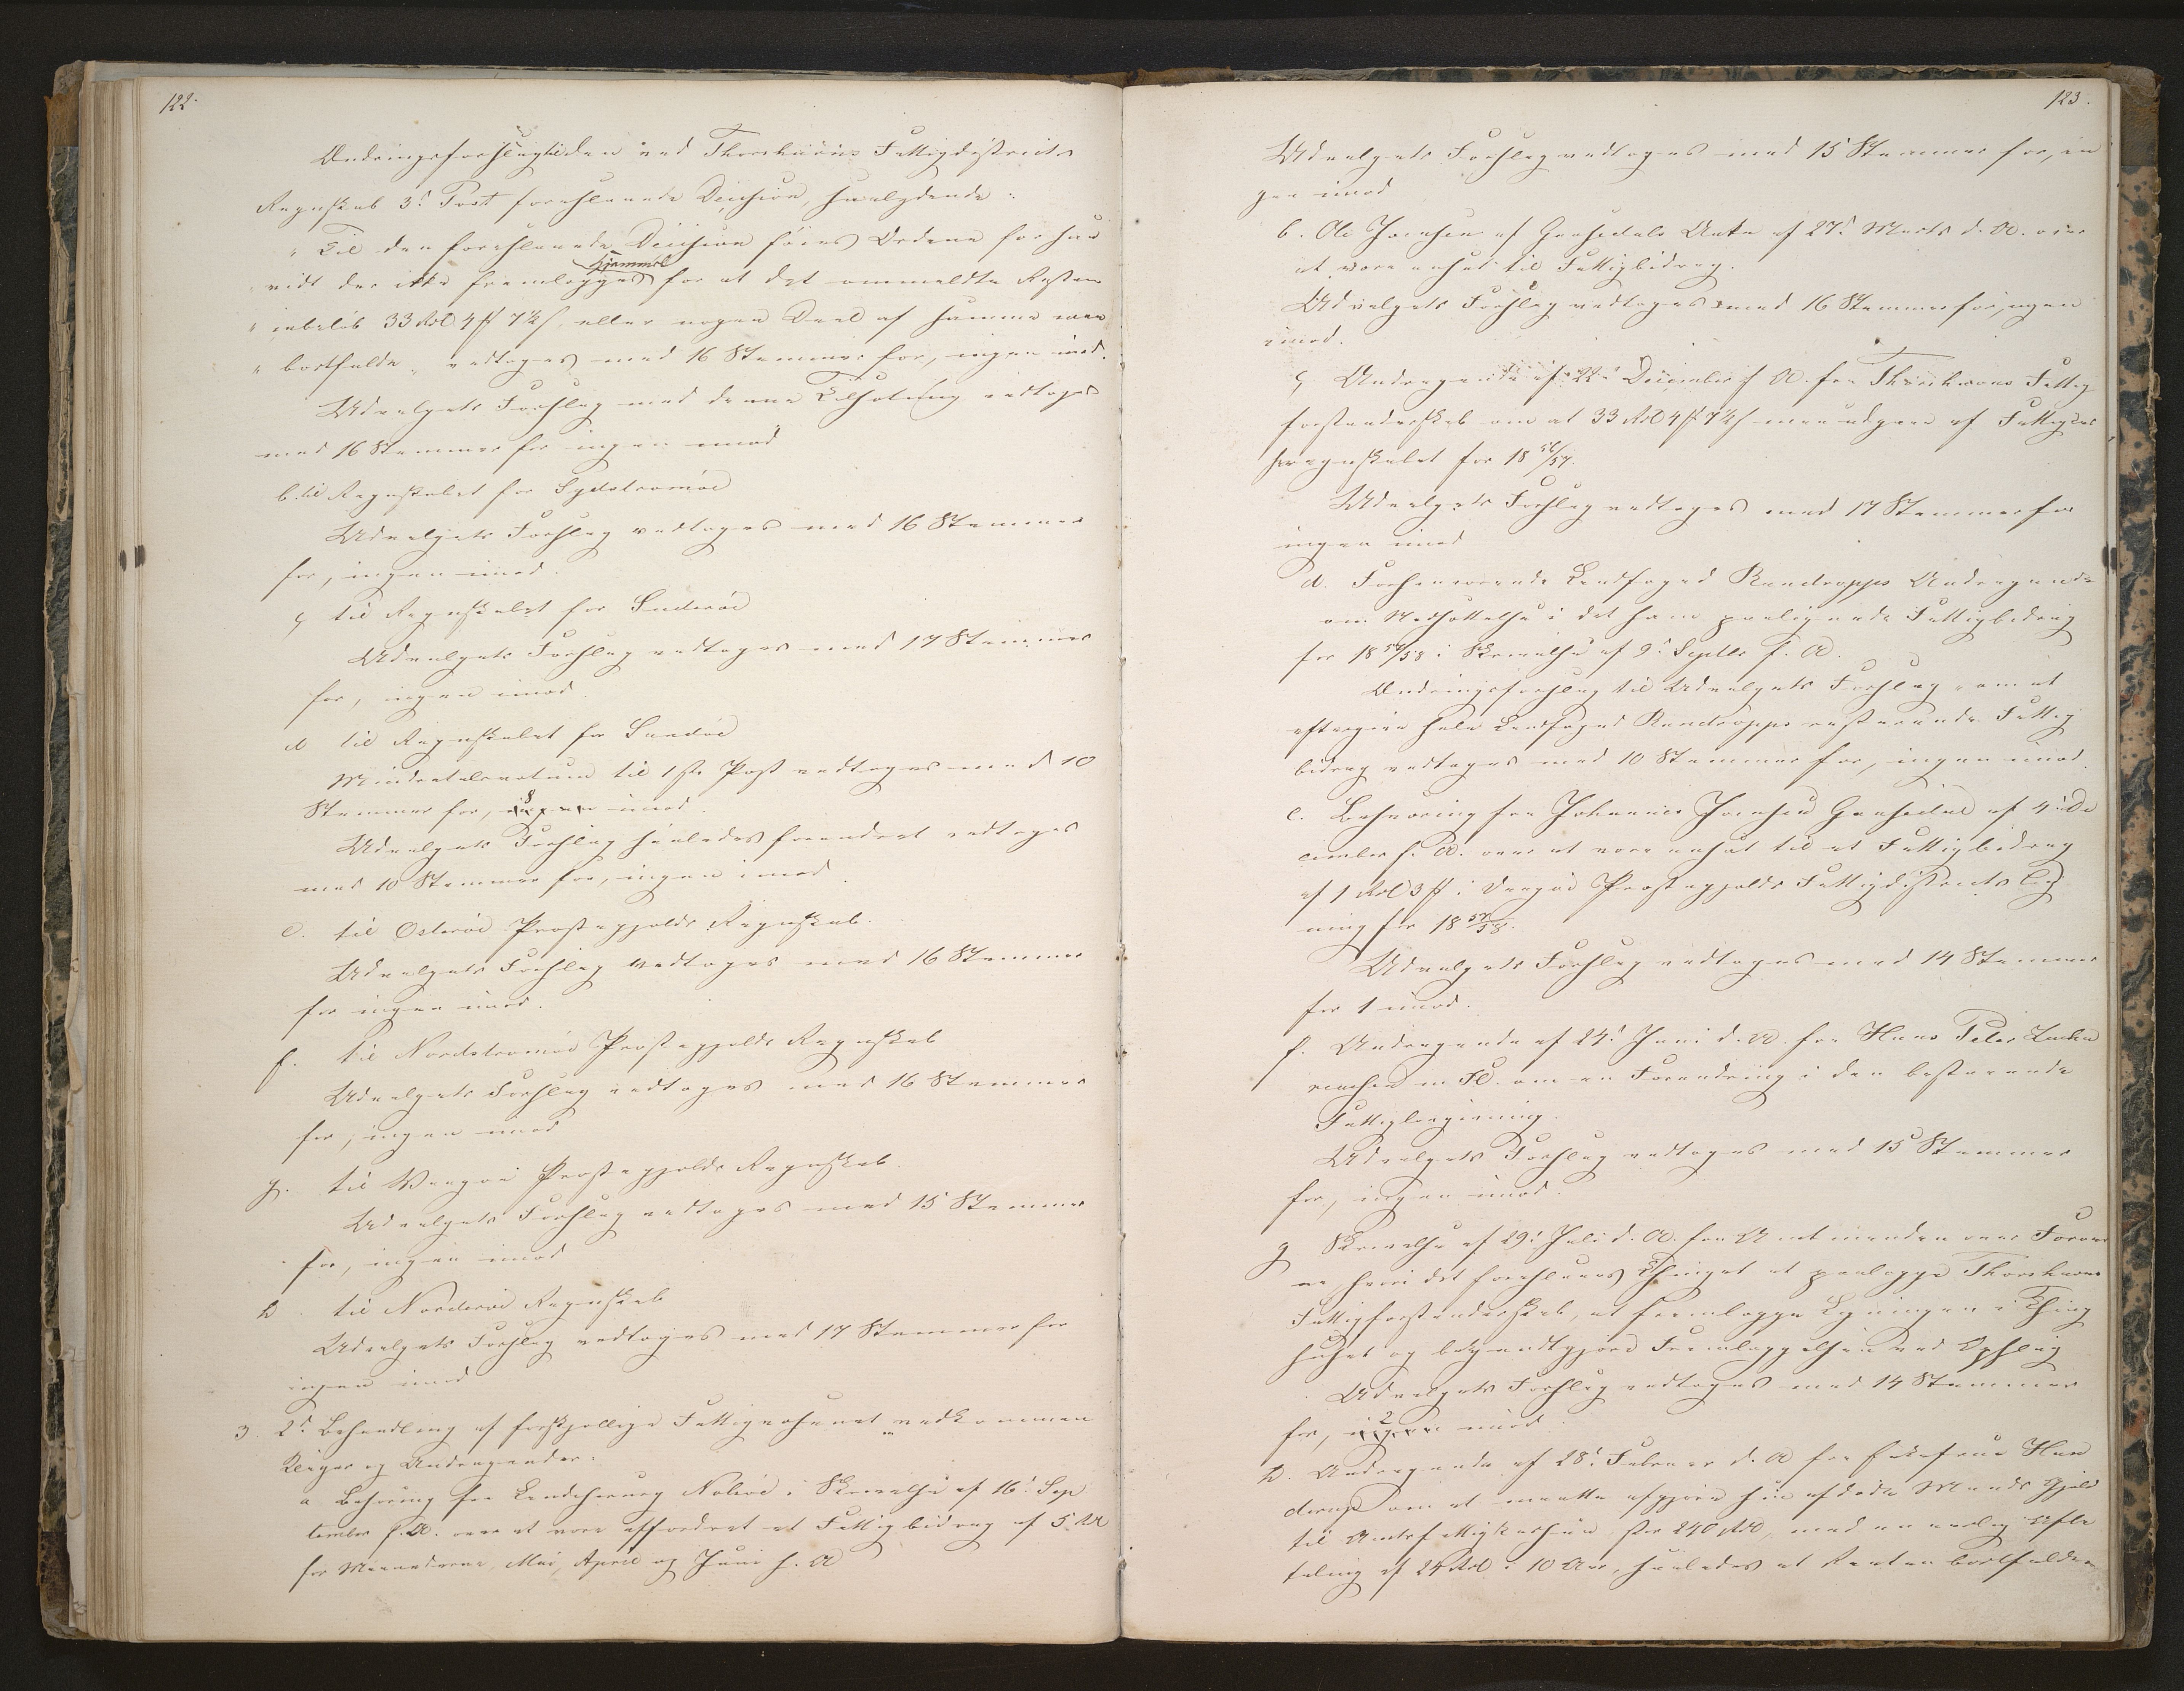 122.
Ændringsforslag til den ved Thorshavns Fattigdistricts
Regnskab 3d Post foreslaaede Decision, saalydende:
" Til den foreslaaede Decision føies Ordene for saa
vidt der ikke fremlægges Hjemmel for at det ommeldte Restan
" cebeløb 33 Rbd 4 ß 7½ s eller nogen Deel af samme maa
" bortfalde " vedtoges med 16 Stemmer for, ingen imod.
Udvalgets Forslag med denne Tilsætning vedtoges
med 16 Stemmer for ingen imod
b. til Regnskabet for Sydstrømøe
Udvalgets Forslag vedtoges med 16 Stemmer
for, ingen imod.
c til Regnskabet for Suderøe
Udvalgets Forslag vedtoges med 17 Stemmer
for, ingen imod.
d til Regnskabet for Sandøe
Mindretalsvotum til 1ste Post vedtoges med 10
Stemmer for, 8 imod.
Udvalgets Forslag saaledes forandret vedtoges
med 10 Stemmer for, ingen imod.
e. til Østerøe Præstegjælds Regnskab.
Udvalgets Forslag vedtoges med 16 Stemmer
for ingen imod.
f. til Nordstrømøe Præstegjælds Regnskab
Udvalgets Forslag vedtoges med 16 Stemmer
for, ingen imod
g. til Waagøe Præstegjælds Regnskab.
Udvalgets Forslag vedtoges med 15 Stemmer
for, ingen imod
h. til Norderøe Regnskab
Udvalgets Forslag vedtoges med 17 Stemmer for
ingen imod
3. 2d Behandling af forskjellige Fattigvæsenet vedkommen
Klager og Andragender:
a Besværing fra Landchirurg Nolsøe i Skrivelse af 16d Sep
tember f. A. over at være affordret et Fattigbidrag af 5 Rd
for Maanederne, Mai, April og Juni f. A
123.
Udvalgets Forslag vedtoges med 15 Stemmer for, in
gen imod
b. Ole Joensen af Gaasedals Anke af 27d Marts d. A. over
at være ansat til Fattigbidrag.
Udvalgets Forslag vedtoges med 16 Stemmer for, ingen
imod.
c Andragende af 22d December f A. fra Thorshavns Fattig
forstanderskab om at 33 Rbd 4 ß 7½ s maa udgaae af Fattigkas
seregnskabet for 18 56/57.
Udvalgets Forslag vedtoges med 17 Stemmer for
ingen imod
d. Forhenværende Landfoged Randropps Andragende
om Nedsættelse i det ham paalignede Fattigbidrag
for 18 57/58 i Skrivelse af 9d Septbr f. A.
Ændringsforslag til Udvalgets Forslag om at
eftergive hele Landfoged Randropps resterende Fattig
bidrag vedtoges med 10 Stemmer for, ingen imod.
e. Besværing fra Johannes Joensen Gaasedal af 4d De
cember f. A. over at være ansat til et Fattigbidrag
af 1 Rbd 3 ß i Vaagøe Præstegjælds Fattigdistricts Lig
ning for 18 57/58.
Udvalgets Forslag vedtoges med 14 Stemmer
for 1 imod.
f. Andragende af 24d Juni d. A. fra Hans Peter
m Fl. om en Forandring i den bestaaende
Fattiglovgivning.
Udvalgets Forslag vedtoges med 15 Stemmer
for, ingen imod.
g Skrivelse af 29d Juli d. A. fra Amtmanden over Færøer
ne hvori det foreslaaes Thinget at paalægge Thorshavns
Fattigforstanderskab, at fremlægge Ligningen i Thing
huset og bekjendtgjøre Fremlæggelsen ved Opslag
Udvalgets Forslag vedtoges med 14 Stemmer
for, 2 imod.
h. Andragende af 28d Februar d. A fra Enkefrue Han
derup om at maatte afgjøre sin afdøde Mands Gjæld
til Amtsfattigkassen stor 240 Rbd, med en aarlig Afbe
taling af 24 Rbd i 10 Aar, saaledes at Renten bortfalder